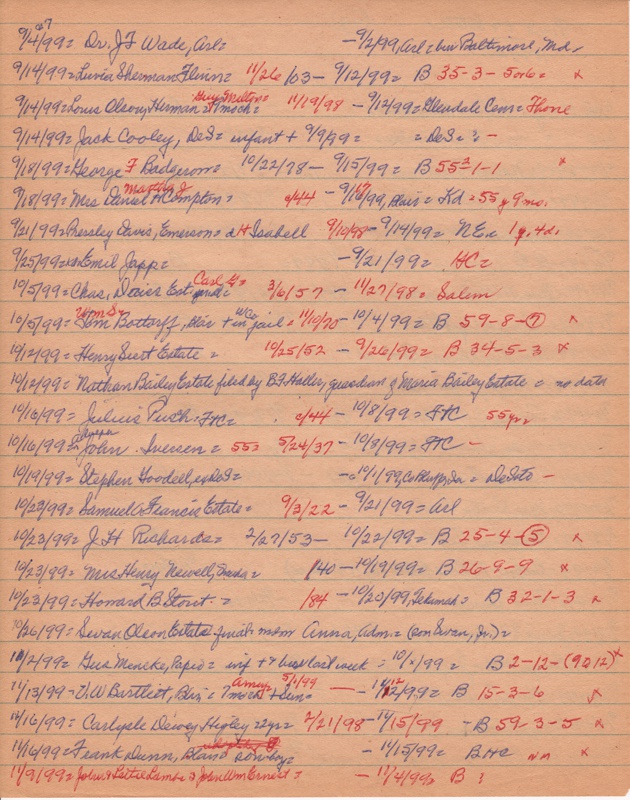 9/4/99= Dr. J F Wade, Arl= - 9/2/99, Arl= bur Baltimore, Md.
9/14/99= Luvia Sherman Flinn= 11/26/63 - 9/12/99= B 35-3-5 or 6= x
Guy Milton=
9/14/99= Louis Olson, Herman 11/19/98 - 9/12/99= Glendale Cem= Thone
9/14/99= Jack Cooley, DeS= infant + 9/9/99 = DeS= ? -
9/18/99= George F Badgerow= 10/22/78 - 9/15/99= B 55-1-1 x
Martha J
9/18/99= Mrs Daniel H Compton= c/44 - 9/16/99, Blair= Kd = 55 y 9 mo.
9/21/99= Pressley Davis, Emerson= d H Isabell 9/10/98 - 9/14/99= NE= 1 y. 4 d.
9/25/99= Emil Japp= - 9/21/99= HC=
Carl G=
10/5/99= Chas. Dorier Est. 3/6/57 - 11/27/98= Salem
Wm S= W Co
10/5/99= Tom Bottorff, Blair + in jail = 11/10/70 - 10/4/99= B 59-8-7 x
10/12/99= Henry Siert Estate = 10/25/52 - 9/26/99= B 34-5-3 x
10/12/99= Nathan Bailey Estate filed by B F Haller, guardian of Maria Bailey Estate = no data
10/16/99= Julius Push. FHC= c/44 - 10/8/99= FHC 55 yrs
10/16/99= John Iversen = 55= 5/24/37 - 10/8/99= FHC -
10/19/99= Stephen Goodell, DeS= - 10/1/99, = DeSoto -
10/23/99= Samuel A Francis Estate= 9/3/22 - 9/21/99= Arl
10/23/99= J H Richards= 2/27/53 - 10/22/99= B 25-4-5 x
10/23/99= Mrs Henry Newell, = /40 - 10/19/99= B 26-9-9 x
10/23/99= Howard B Stout = /84 - 10/20/99, Tekamah= B 32-1-3 x
10/26/99= Swan Olson Estate final= mom Anna, Adm.= (son Swan, Jr.)=
11/2/99= Gus Mencke, Papio= inf + & bur last week = 10/x/99= B 2-12-(9 or 12) x
Amy= 5/1/99
11/13/99= V. W Bartlett, Blair= 7 mo + Sun= - 11/12/99= B 15-3-6 x
11/16/99= Carlysle Dewey Higley 2 yrs= 2/21/98 - 11/15/99 - B 59-3-5 x
11/16/99= Frank Dunn, Blair son by= - 11/15/99= B HC NM x
11/9/99= John & Lottie Lambe s John Wm Ernest= - 11/4/99= B ?